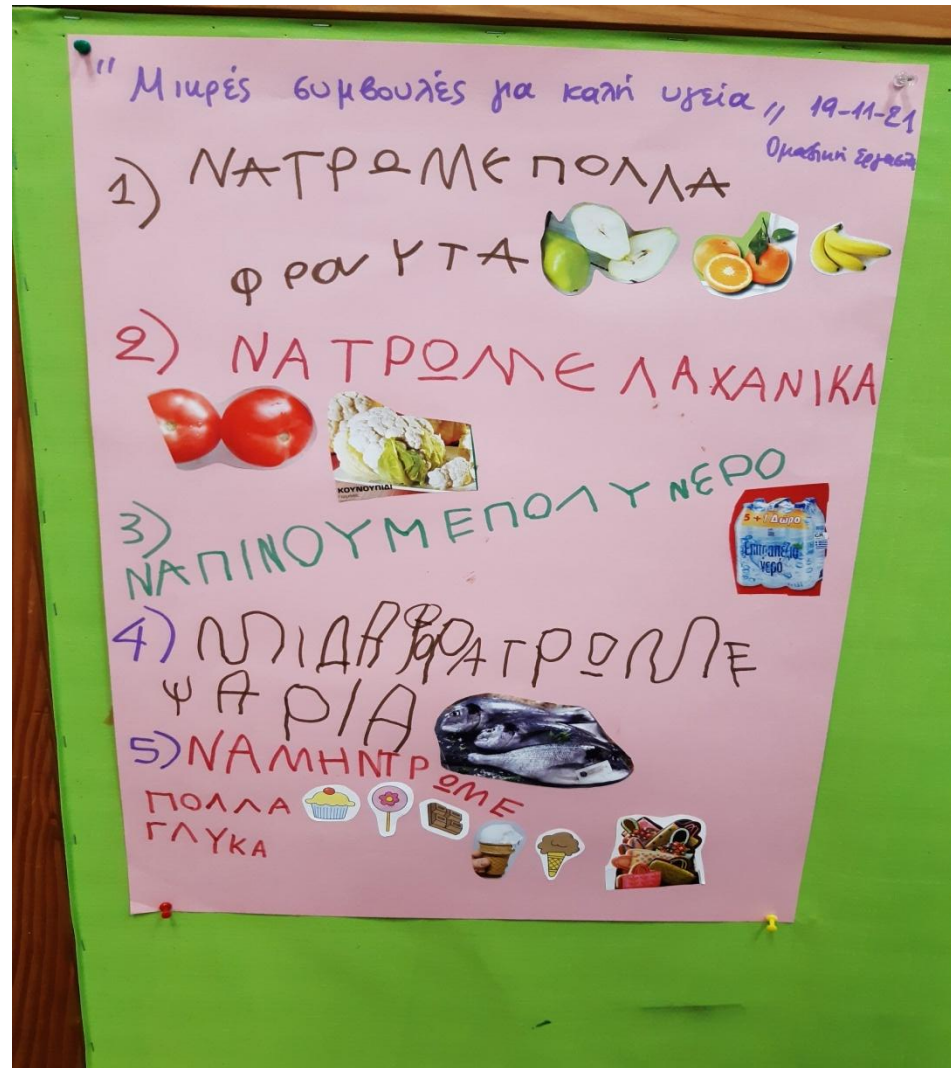 "Μικρές συμβουλές για καλή υγεία" 19-11-21
Ομαδική Εργασία
1) ΝΑ ΤΡΩΜΕ ΠΟΛΛΑ
ΦΡΟΥΤΑ
2) ΝΑ ΤΡΩΜΕ ΛΑΧΑΝΙΚΑ
ΚΟΥΝΟΥΠΙΔΙ
3)
ΝΑ ΠΙΝΟΥΜΕ ΠΟΛΥ ΝΕΡΟ
5 + 1 Δώρο
Επιτραπέζιο
νερό
4) ΜΙΑ ΦΟΡΑ ΤΡΩΜΕ
ΨΑΡΙΑ
5) ΝΑ ΜΗΝ ΤΡΩΜΕ
ΠΟΛΛΑ
ΓΛΥΚΑ